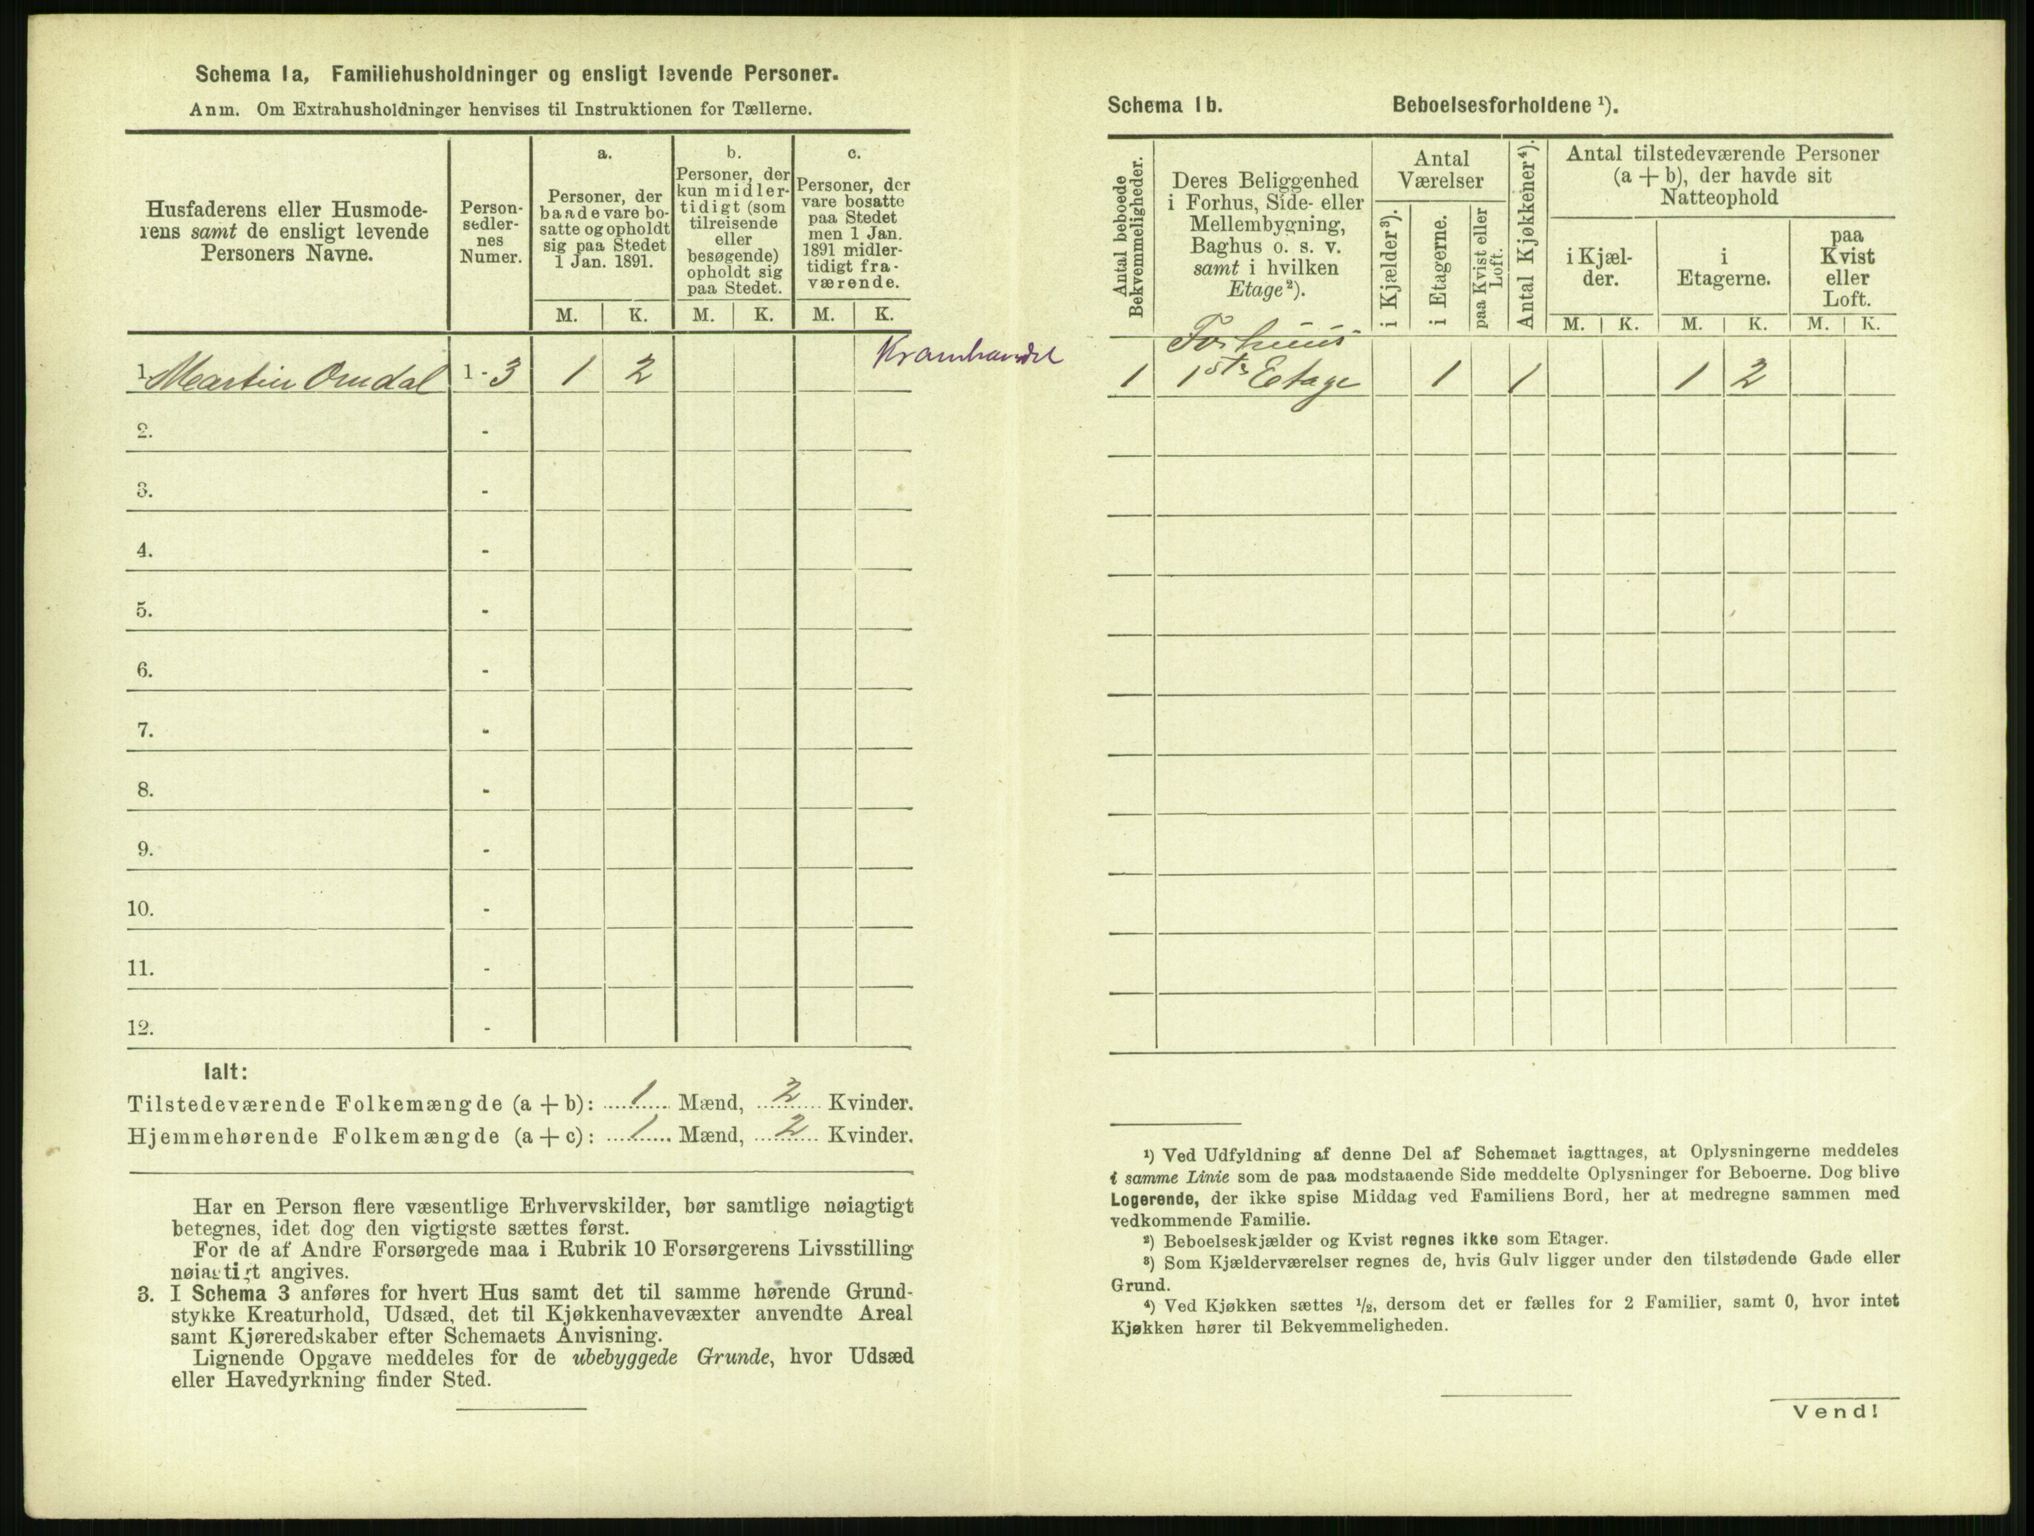 Schema 1a, Familiehusholdninger og ensligt levende Personer.
Anm. Om Extrahusholdninger henvises til Instruktionen for Tællerne.
Husfaderens eller Husmode-
rens samt de ensligt levende
Personers Navne.
Person-
sedler-
nes
Numer.
a.
Personer, der
baade vare bo-
satte og opholdt
sig paa Stedet
1 Jan. 1891.
b.
Personer, der
kun midler-
tidigt (som
tilreisende
eller
besøgende)
opholdt sig
paa Stedet.
c.
Personer, der
vare bosatte
paa Stedet
men 1 Jan.
1891 midler-
tidigt fra-
værende.
M. K. M. K. M. K.
1. Martin Omdal 1 - 3 1 2 Kramhandel
2. -
3. -
4. -
5. -
6. -
7. -
8. -
9. -
10. -
11. -
12. -
Ialt:
Tilstedeværende Folkemængde (a + b): 1 Mænd, 2 Kvinder.
Hjemmehørende Folkemængde (a + c): 1 Mænd, 2 Kvinder.
Har en Person flere væsentlige Erhvervskilder, bør samtlige nøiagtigt
betegnes, idet dog den vigtigste sættes først.
For de af Andre Forsørgede maa i Rubrik 10 Forsørgerens Livsstilling
nøiagtigt angives.
3. I Schema 3 anføres for hvert Hus samt det til samme hørende Grund-
stykke Kreaturhold, Udsæd, det til Kjøkkenhavevæxter anvendte Areal
samt Kjøreredskaber efter Schemaets Anvisning.
Lignende Opgave meddeles for de ubebyggede Grunde, hvor Udsæd
eller Havedyrkning finder Sted.
Schema 1b. Beboelsesforholdene ¹).
Antal beboede
Bekvemmeligheder.
Deres Beliggenhed
i Forhus, Side- eller
Mellembygning,
Baghus o. s. v.
samt i hvilken
Etage²).
Antal
Værelser
i Kjælder³).
i Etagerne.
paa Kvist eller
Loft.
Antal Kjøkkener⁴).
Antal tilstedeværende Personer
(a + b), der havde sit
Natteophold
i Kjæl-
der.
i
Etagerne.
paa
Kvist
eller
Loft.
M. K. M. K. M. K.
Forhuus
1 1ste Etage 1 1 1 2
¹) Ved Udfyldning af denne Del af Schemaet iagttages, at Oplysningerne meddeles
i samme Linie som de paa modstaaende Side meddelte Oplysninger for Beboerne. Dog blive
Logerende, der ikke spise Middag ved Familiens Bord, her at medregne sammen med
vedkommende Familie.
²) Beboelseskjælder og Kvist regnes ikke som Etager.
³) Som Kjælderværelser regnes de, hvis Gulv ligger under den tilstødende Gade eller
Grund.
⁴) Ved Kjøkken sættes ½, dersom det er fælles for 2 Familier, samt 0, hvor intet
Kjøkken hører til Bekvemmeligheden.
Vend!